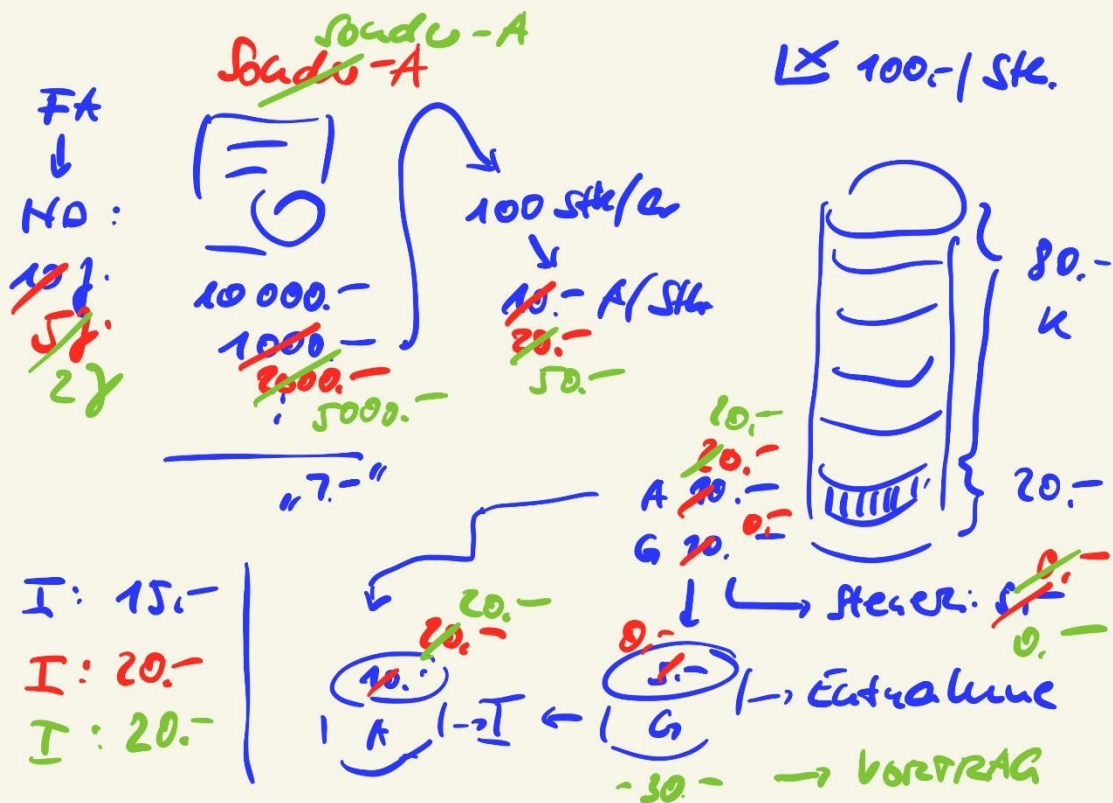 Sonder-A
Sonder-A
FA
ND:
10 J.
5 J.
2 J
10 000.-
1000.-
2000.-
5000.-
"7.-"
100 Stk/
10.- A/Stk
20.-
50.-
100.-/Stk.
80.-
K
20.-
20.-
20.-
A 10.-
G 10. 0.-
Steuer: 5.- 0.-
0.-
I: 15.-
I: 20.-
I: 20.-
20.-
20.-
10.-
A
I
0.-
5.-
G
Entnahme
-30.- → VORTRAG